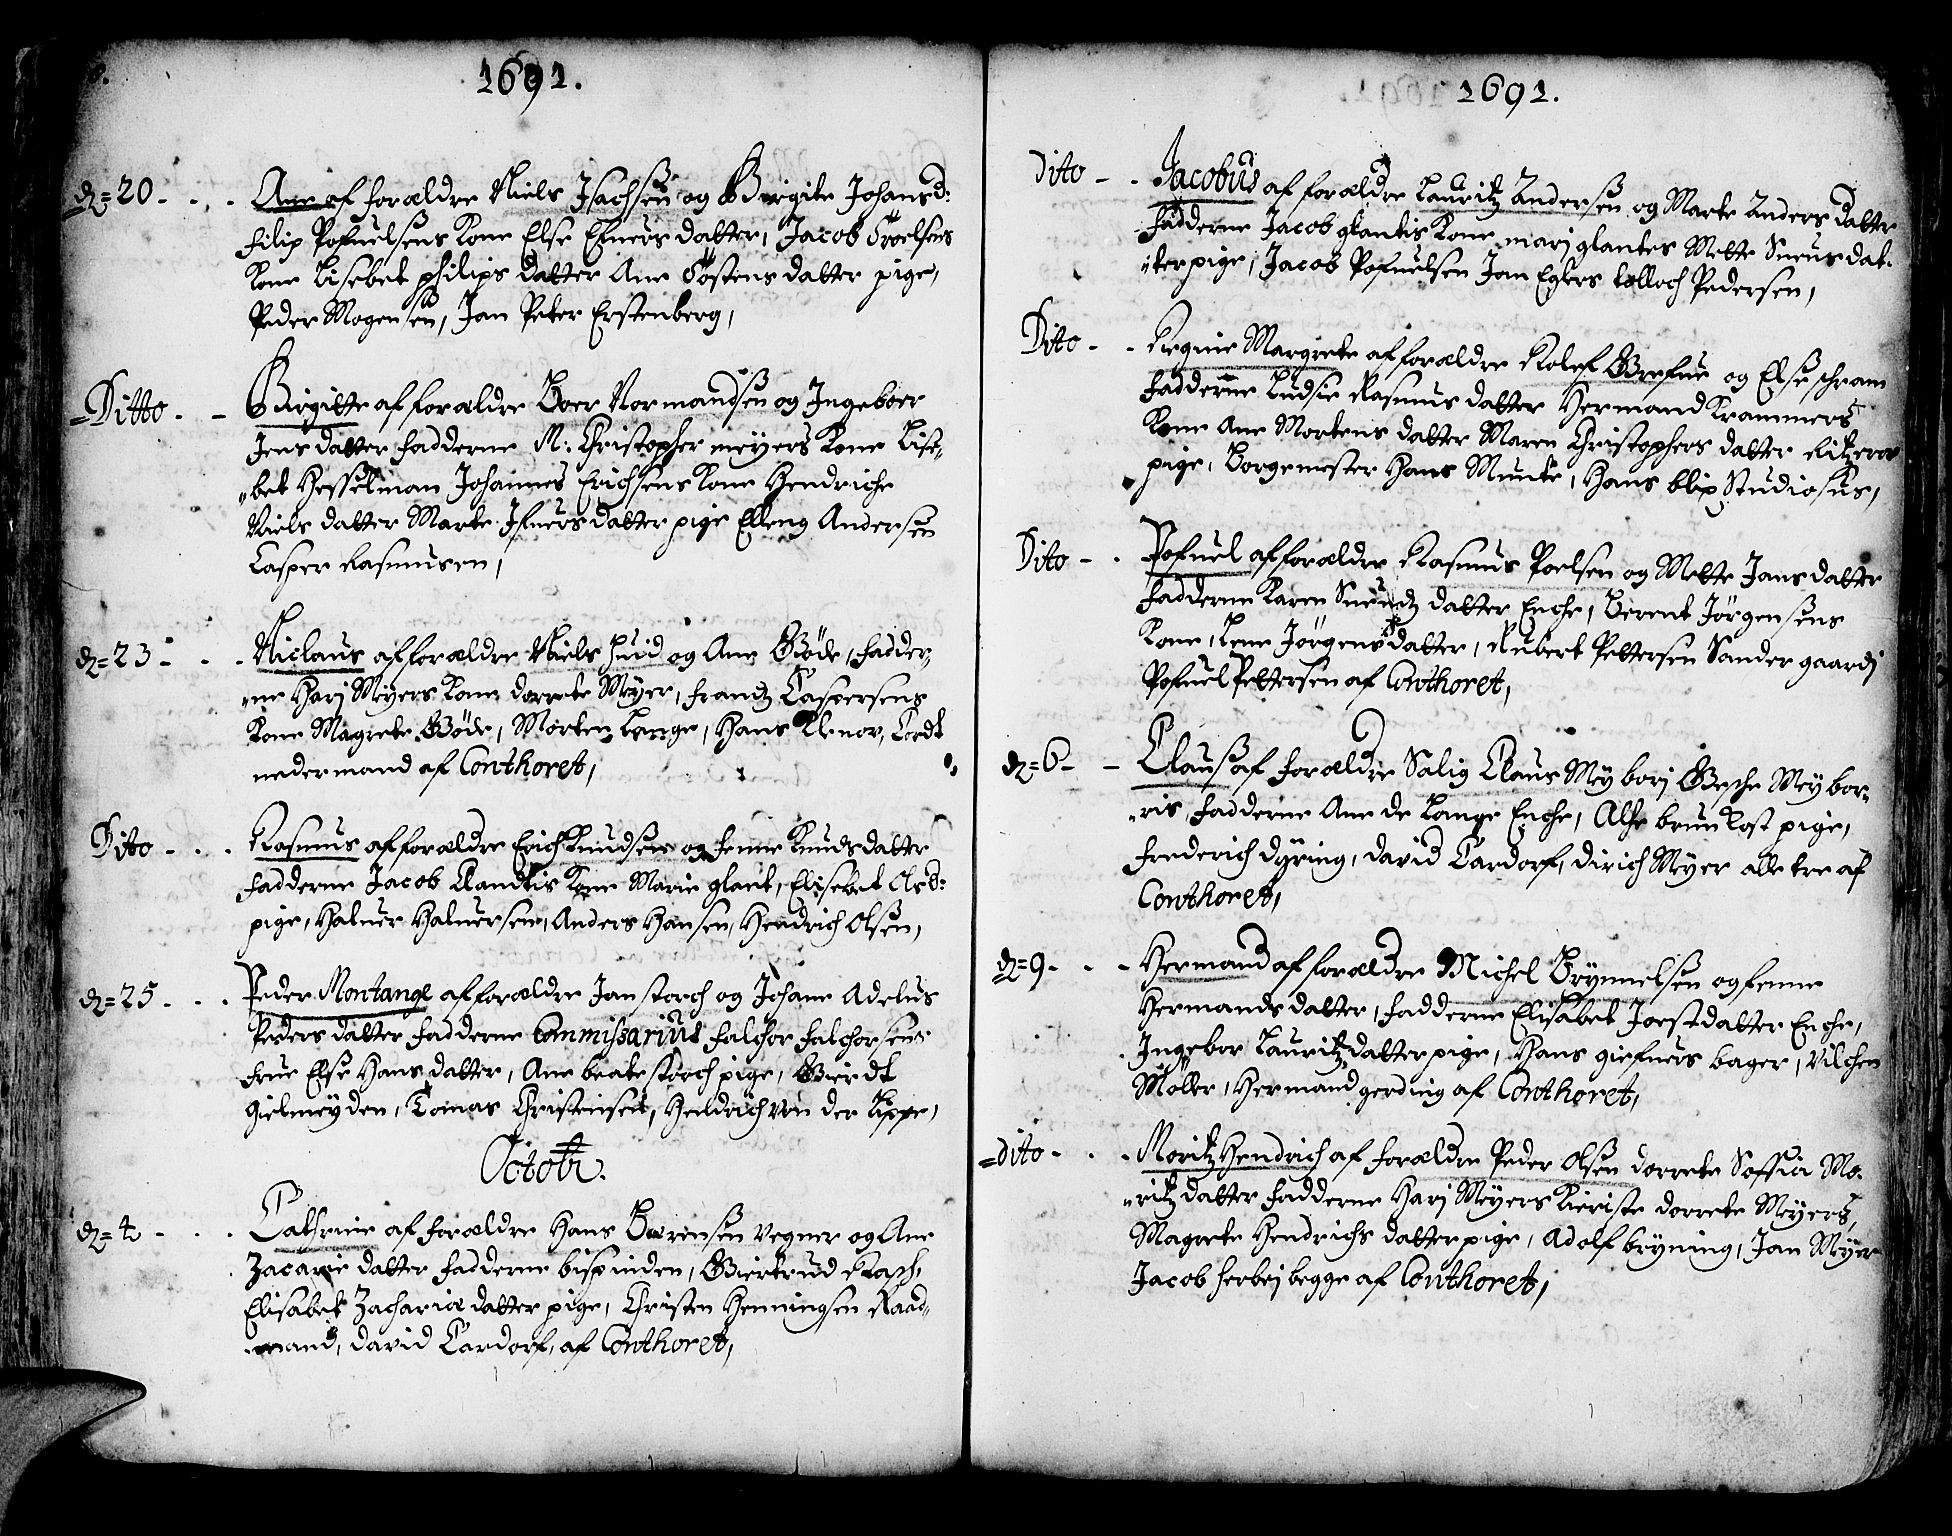 1691.
d= 20 - - - Ane af forældre Niels Isachsen og Birgite Johansd:
filip Pofuelsens Kone Else Efuers datter, Jacob Troelsens
Kone Lisebet philips datter Ane Tostens datter pige,
Peder Mogensen, Jan Peter Erstenberg,
Ditto - - Birgitte af forældre Boer Normandsen og Ingeboer
Jens datter fadderne M: Christopher meyers Kone Lise,,
,,bet Hesselman Johannes Erichsens Kone Hendriche
Niels datter Marte Ifuers datter pige Elleng Andersen
Casper Rasmusen,
d= 23 - - - Niclaus af forældre Niels huid og Ane Bøde, fadder,,
,,ne Harj Meyers Kone dorrete Meyer, frandz Caspersens
Kone Magrete Bøde, Morten Lange, Hans Klenov, Cordt
nedermand af Conthoret,
Dito - - - Rasmus af forældre Erich Knudsen og fenne Knudsdatter
fadderne Jacob Klandtis Kone Marie glant, Elisebet Olsd:
pige, Haluer Haluersen, Anders Hansen, Hendrich Olsen,
d= 25 - - - Peder Montange af forældre Jan storch og Johane Adelus
Peders datter fadderne Commissarius falchor falchorsens
frue Else Hans datter, Ane beate storch pige, Gierdt
Gielmeyden, Tomas Christensen, Hendrich von der Lippe,
Octobr.
d= 4 - - - Cathrine af forældre Hans Børensen Vegner og Ane
Zacarie datter fadderne bispinden, Giertrud Rasch,
Elisabet Zacharie datter pige, Christen Henningsen Raad,,
,,mand, david Cardorf, af Conthoret,
1691.
Dito - - Jacobus af forældre Lauritz Andersen og Marte Anders datter
fadderne Jacob glantis Kone marj glantes Mette Sneus dat,,
,,ter pige, Jacob Pofuelsen Jan Egbers tolloch Pedersen,
Dito - - Regine Margrete af forældre Rolef Grefue og Else schram
fadderne Ludsie Rasmus datter Hermand Krammers
Kone Ane Mortens datter Maren Christophers datter Ritzerov
pige, Borgemester Hans Munte, Hans blix Studiosus,
Dito - - Pofuel af forældre Rasmus Poelsen og Mette Jans datter
fadderne Karen datter Enche, Berent Jørgensens
Kone, Lene Jørgens datter, Rubert Pettersen Sandergaardj
Pofuel Pettersen af Conthoret,
d= 6 - - Claus af forældre Salig Claus Meyborj Gesche Meybor,,
,,ris, fadderne Ane de Lange Enche, Alhe brunkost pige,
frederich dyring, david Cardorf, dirich Meyer alle tre af
Conthoret,
d= 9 - - - Hermand af forældre Michel Brynnelsen og fenne
Hermands datter, fadderne Elisabet Joestdatter Enche,
Ingebor Lauritzdatter pige, Hans giefuers bager, Vilchen
Møller, Hermand gerding af Conthoret,
dito - - - Moritz Hendrich af forældre Peder Olsen dorrete Soffia Mo,,
,,ritz datter fadderne Harj Meyers Kieriste dorrete Meyers,
Magrete Hendrichs datter pige, Adolf bryning, Jan Meyer
Jacob herbej begge af Conthoret,